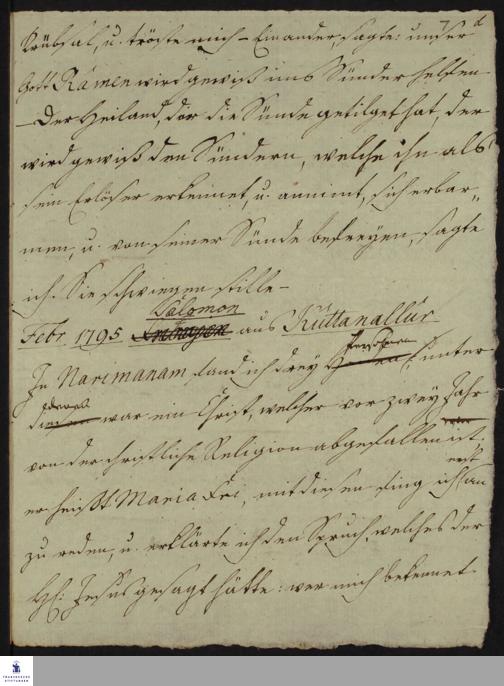 7 d
Trübsal, u. tröste mich – Einander, sagte: unser
Gott Rámen wird gewiß uns Sünder helfen –
– Der Heiland, der die Sünde getilget hat, der
wird gewiß den Sündern, welche ihn als
sein Erlöser erkennet, u. annimt, sich erbar„
men, u. von seiner Sünde befreyen, sagte
ich. Sie schwiegen stille –
Salomon
Febr. 1795 aus Kúttanallúr
Personen
In Naremanam fand ich drey, unter
deren
war ein Christ, welcher vor zwey Jahr
von der christliche Religion abgefallen ist,
erst
er heißt Maria, mit diesen fing ich an
zu reden, u. erklärte ich den Spruch, welches der
HE: Jesus gesagt hätte: wer mich bekennet
FRANCKESCHE STIFTUNGEN